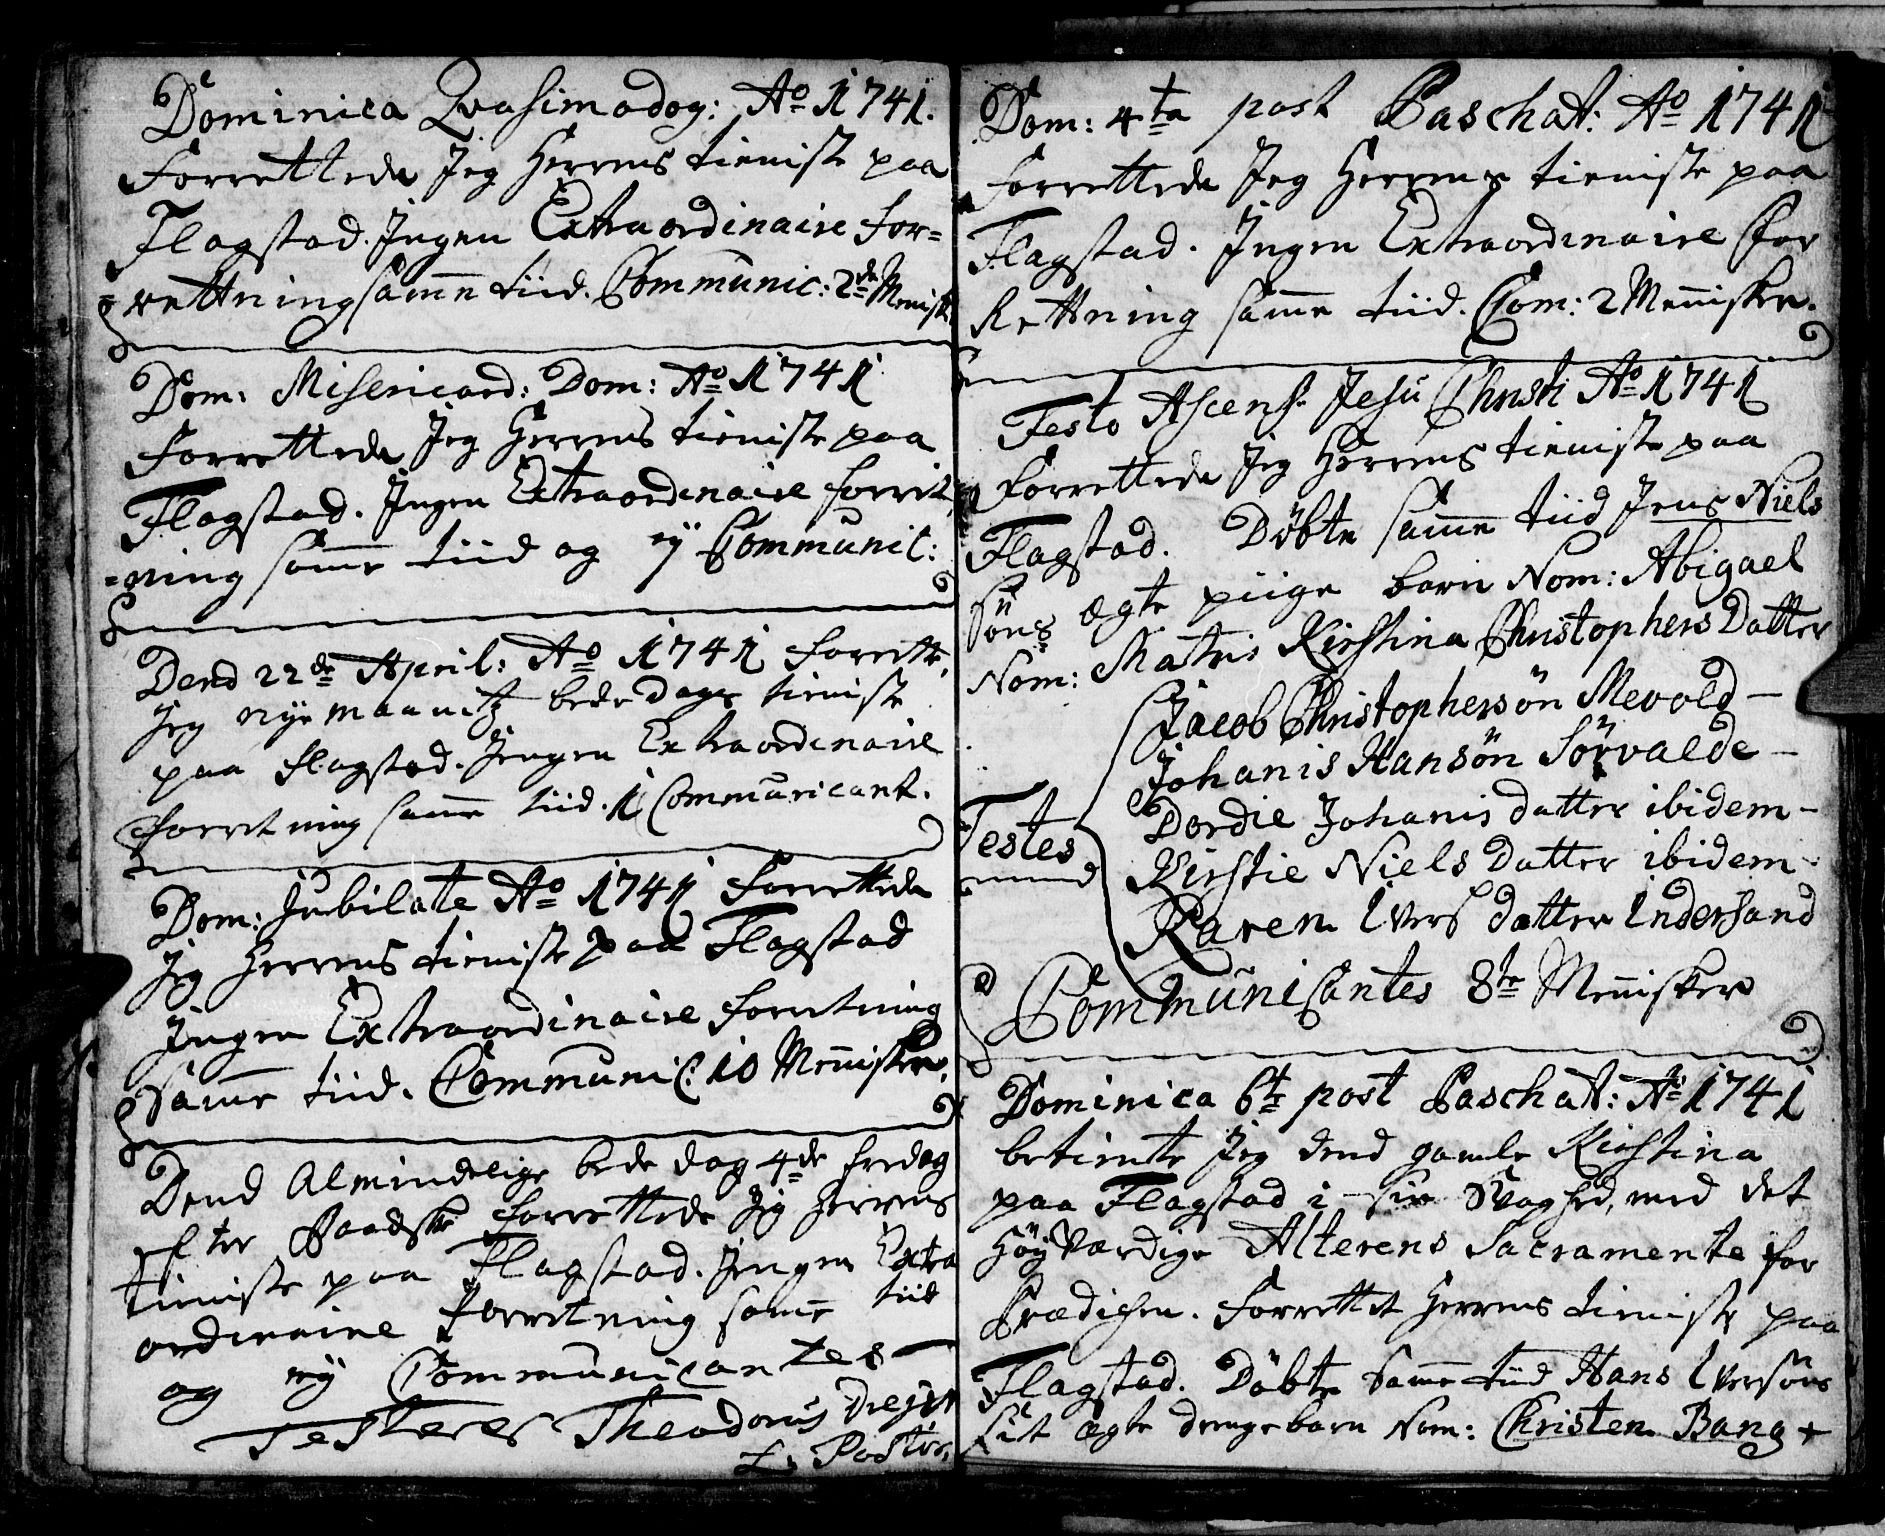 Dominica Qvasimodog: Ao 1741.
Forrettede Jeg Herrens tieniste paa
Flagstad. Ingen Extraordinaire for=
=rettning samme tiid. Communic: 2de Menisk
Dom: Misericord: Dom: Ao 1741
Forrettede Jeg Herrens tieniste paa
Flagstad. Ingen Extraordinaire forret
=ning samme tiid og ey Communic:
Dend 22de April: Ao 1741 forrette
Jeg nye maanetz bededags tieniste
paa flagstad. Ingen Extraordinaire
forretning samme tiid. 1 Communicant.
Dom: Jubilate Ao 1741 forrettede
Jeg Herrens tieniste paa Flagstad
Ingen Extraordinaire forretning
samme tiid. Communic: 10 Mennisker.
Dend Almindelige bede dag 4de fredag
efter Paadske forrettede Jeg Herrens
tieniste paa Flagstad. Ingen Extra
ordinaire forretning samme tiid
og ey Communicantes
Testeres Theodorus Drejer
L. Pastor.
Dom: 4ta post Paschat: Ao 1741
forrettede Jeg Herrens tieniste paa
Flagstad. Ingen Extraordinaire for
Rettning samme tiid. Com: 2 Mennisker.
Festo Ascens. Jesu Christi Ao 1741
forrettede Jeg Herrens tieniste paa
Flagstad. Döbte samme tiid Jens Niels
Söns ægte piige barn Nom: Abigael
Nom: Matris Kirstina Christophers Datter
Jacob Christophersön Mevold –
Johanis Hansön Sörvalde –
Testes Dordie Johanis datter ibidem –
Kirstie Niels Datter ibidem –
Karen Ivers datter Indersand
Communicantes 8te Mennisker
Dominica 6te post Paschat: Ao 1741
betiente Jeg dend gamle Kirstina
paa Flagstad i sin Svaghed, med det
Höyværdige Alterens Sacramente for
Prædichen. Forrettet Herrens tieniste paa
Flagstad. Döbte samme tiid Hans Iversöns
sit ægte drengebarn Nom: Christen Bang +